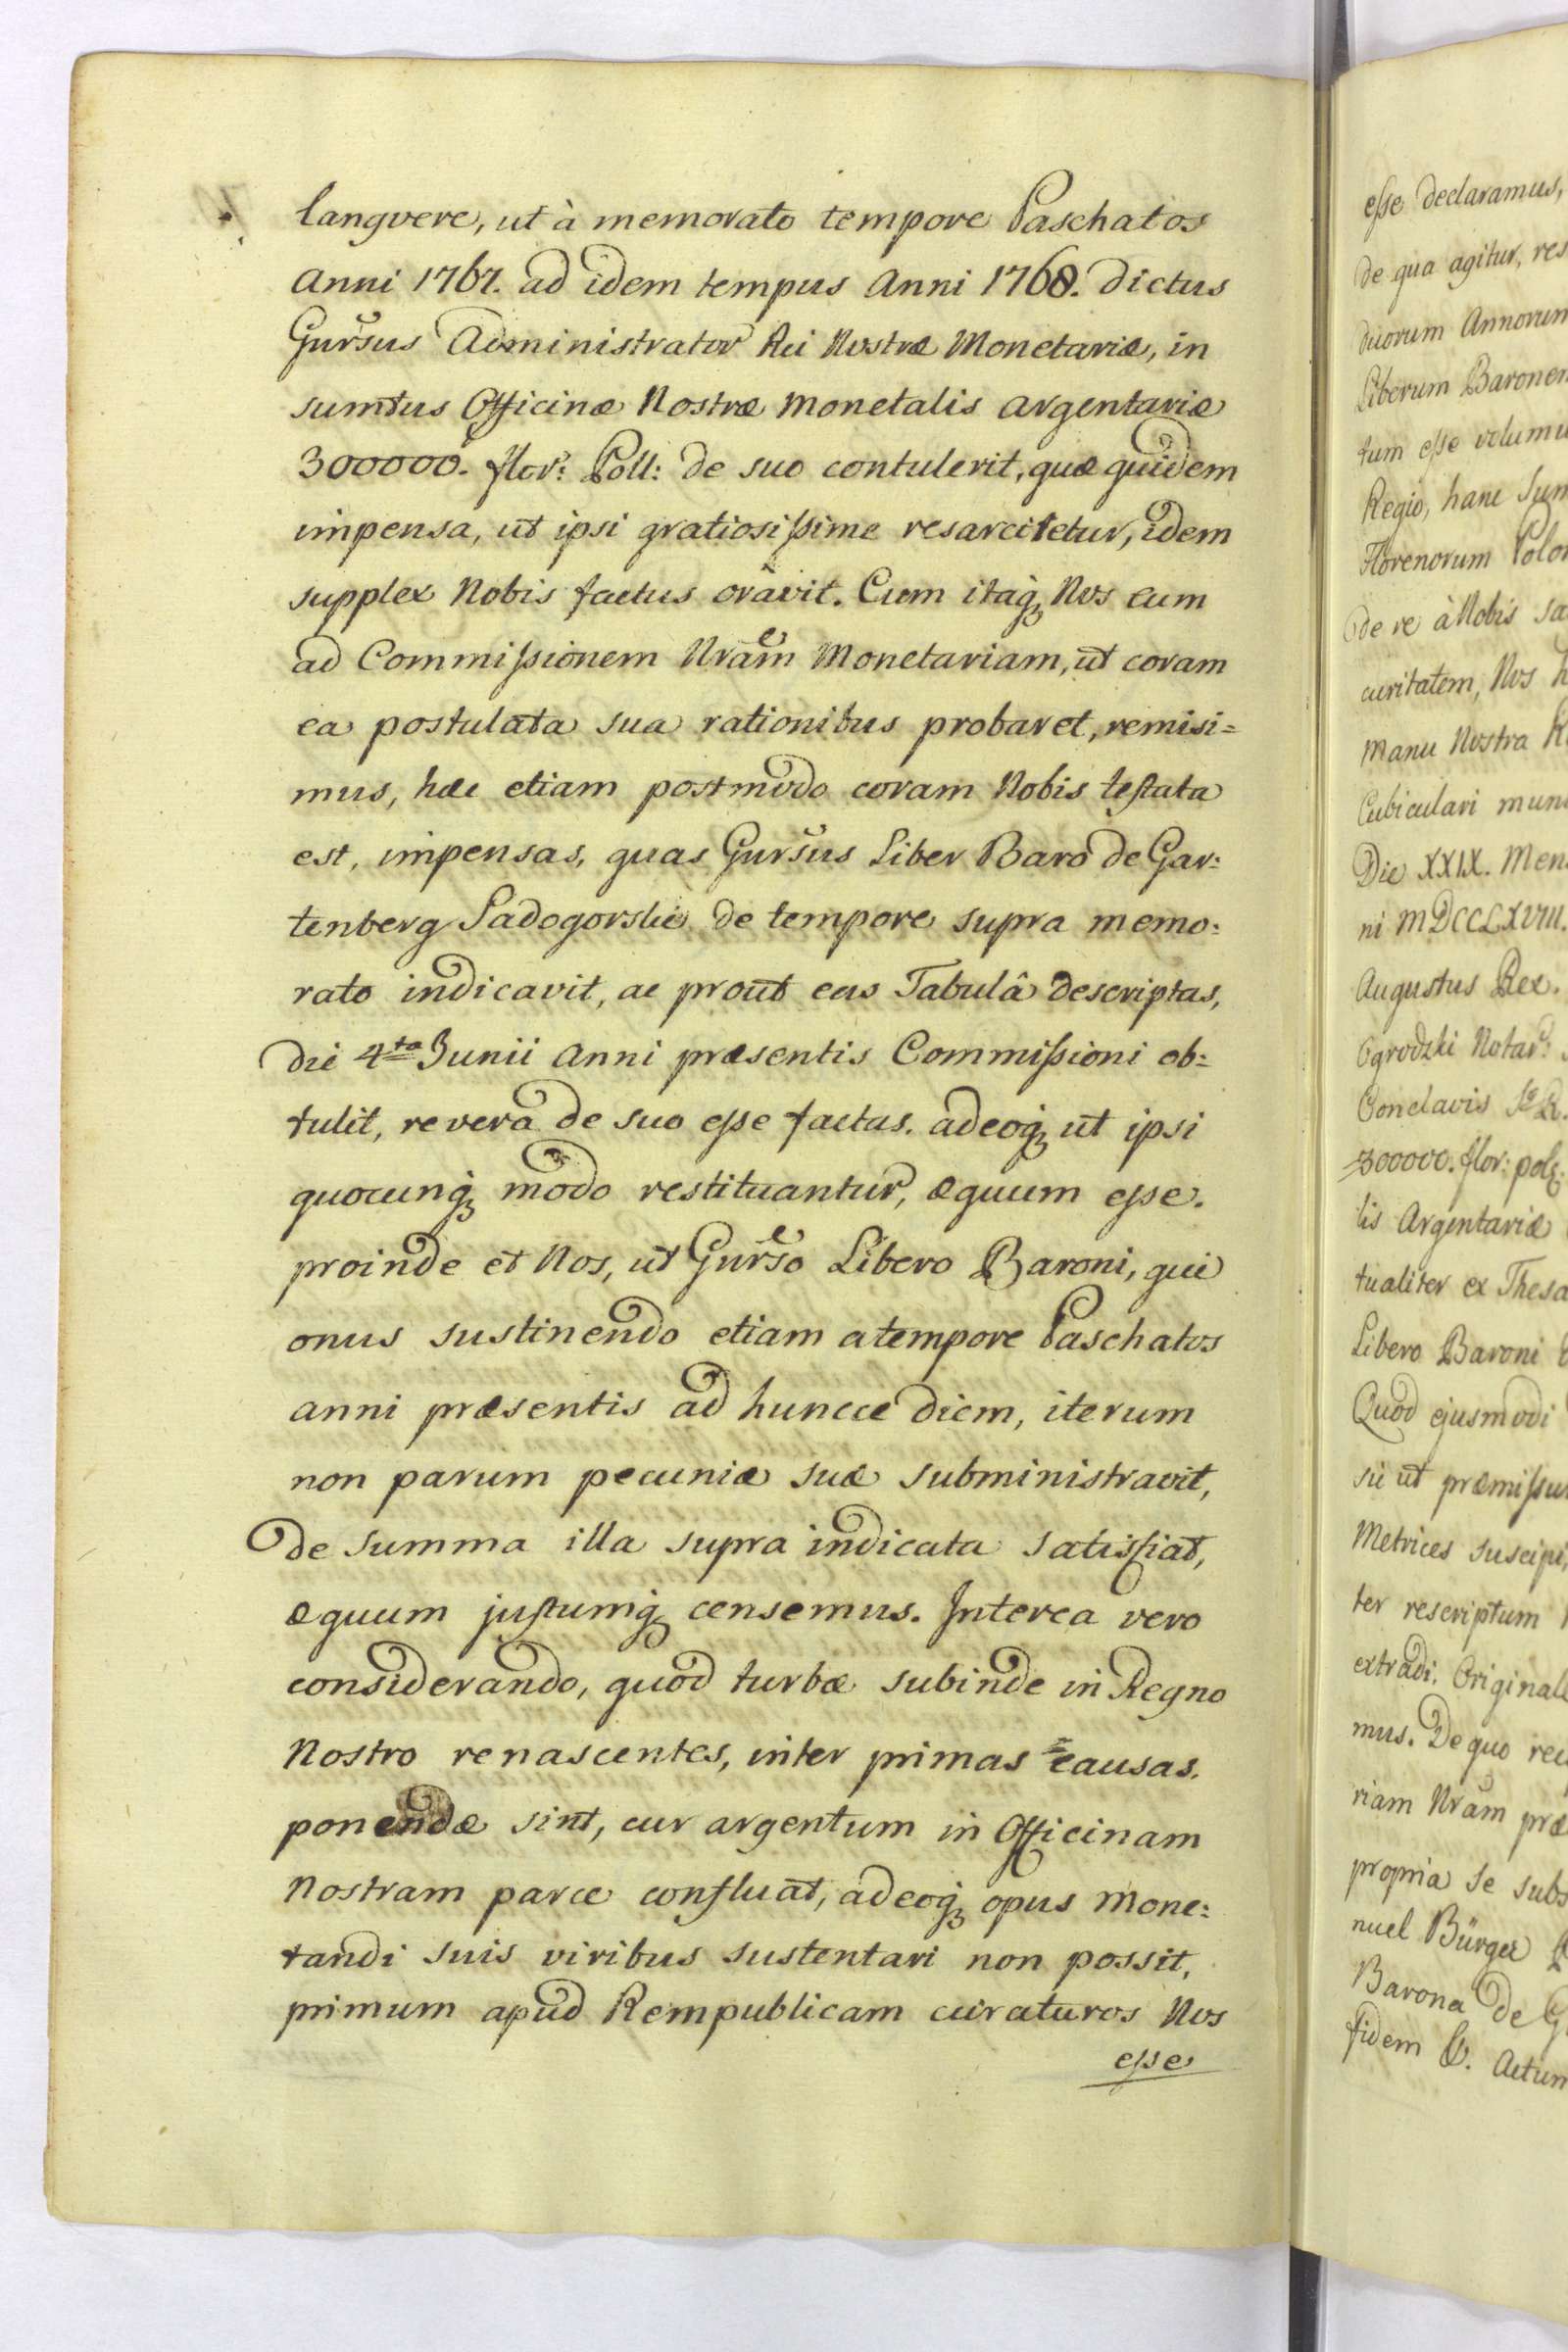 langvere, ut à memorato tempore Paschatos
Anni 1767. ad idem tempus Anni 1768. dictus
Gnrsus Administrator Rei Nostræ Monetariæ, in
sumtus Officinæ Nostræ Monetalis argentariæ
300000. flor: Poll: de suo contulerit, quæ quidem
impensa, ut ipsi gratiosissime resarciretur, idem
supplex Nobis factus oravit. Cum itaq; Nos eum
ad Commissionem Nram Monetariam, ut coram
ea postulata sua rationibus probaret, remisi=
mus, hæc etiam postmodo coram Nobis testata
est, impensas, quas Gnrsus Liber Baro de Gar:
tenberg Sadogorski de tempore supra memo:
rato indicavit, ac prout eas Tabulâ descriptas,
die 4ta Junii anni præsentis Commissioni ob:
tulit, revera de suo esse factas. adeoq; ut ipsi
quocunq; modo restituantur, æquum esse.
proinde et Nos, ut Gnrso Libero Baroni, qui
onus sustinendo etiam a tempore Paschatos
anni præsentis ad huncce diem, iterum
non parum pecuniæ suæ subministravit,
de summa illa supra indicata satisfiat,
æquum justumq; censemus. Interea vero
considerando, quod turbæ subinde in Regno
Nostro renascentes, inter primas causas.
ponendæ sint, cur argentum in Officinam
Nostram parce confluat, adeoq; opus Mone:
tandi suis viribus sustentari non possit,
primum apud Rempublicam curaturos Nos
esse
esse declaramus,
de qua agitur, res
duorum Annorum
Liberum Baronem
tum esse volumu
Regio, hanc Sum
Florenorum Polon
de re à Nobis sa
curitatem, Nos h
Manu Nostra R
Cubiculari mun
Die XXIX. Men
ni MDCCLXVIII.
Augustus Rex.
Ogrodzki Notar:
Conclavis S. R.
300000. flor: pol
lis Argentariæ
tualiter ex Thesa
Libero Baroni
Quod ejusmodi
sii ut præmissu
Metrices suscipi
ter rescriptum
extradi. Original
mus. De quo rec
riam Nram præ
propria se subs
nuel Bürger
Barona de G
fidem &. Actum